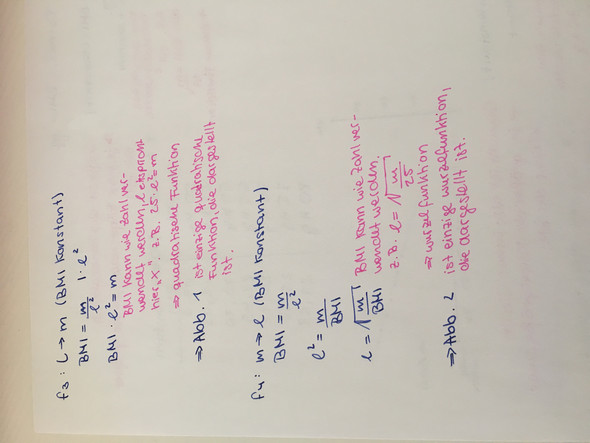 f₃: l → m (BMI konstant)
BMI = m/l² | · l²
BMI · l² = m
BMI kann wie Zahl ver-
wendet werden, l etspricht
hier „x". z.B. 25 · l² = m
⇒ quadratische Funktion
⇒ Abb. 1 ist einzige quadratische
Funktion, die dargestellt
ist.
f₄: m → l (BMI konstant)
BMI = m/l²
l² = m/BMI
l = √(m/BMI)
BMI kann wie Zahl ver-
wendet werden.
z.B. l = √(m/25)
⇒ wurzelfunktion
⇒ Abb. 2 ist einzige wurzelfunktion,
die dargestellt ist.